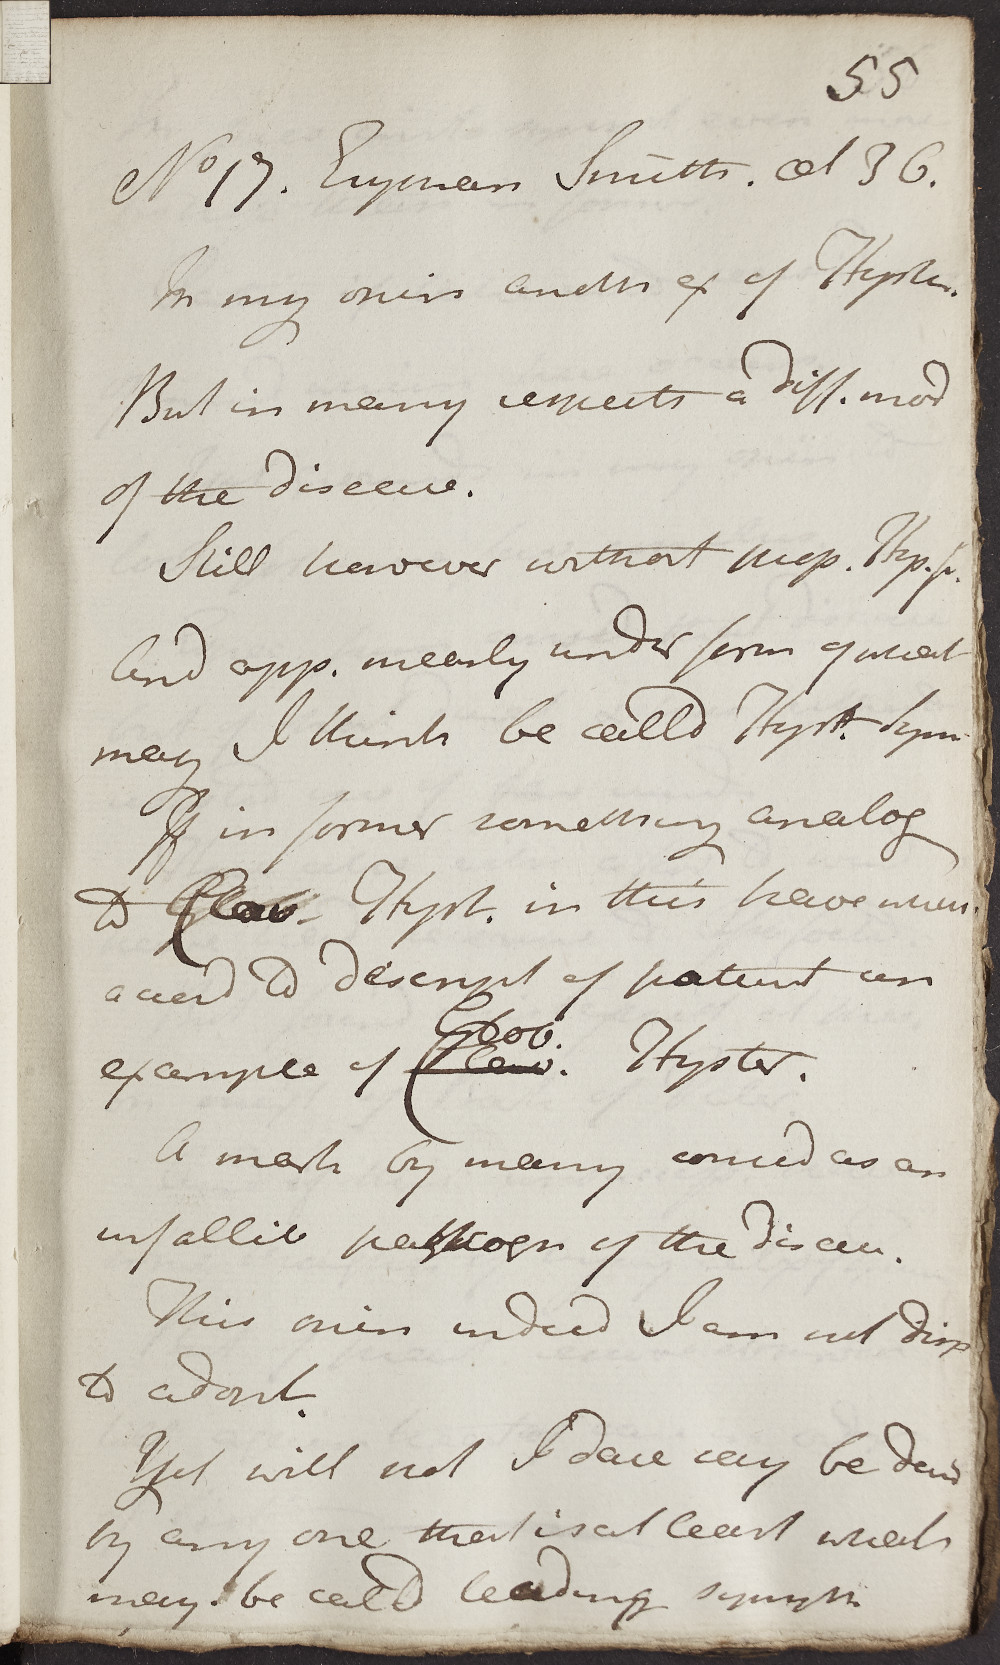 55
No 17. Eupham Smith. æt 36.
In my opin anoth ex of Hyster.
But in many respects a diff. mod
of the disease.
Still however without prop. Hyp. p.
And app. mearly under form of what
may I think be calld Hyst. Sym
If in former something analog
to Clav. Hyst. in this have un
accord to descript of patient an
example of Clav. Glob. Hyster.
A mark by many consid as an
infallib pathogn of the diseas.
This opin indeed I am not disp
to adopt.
Yet will not I dare say be denid
by any one that is at least what
may be calld leading sympt